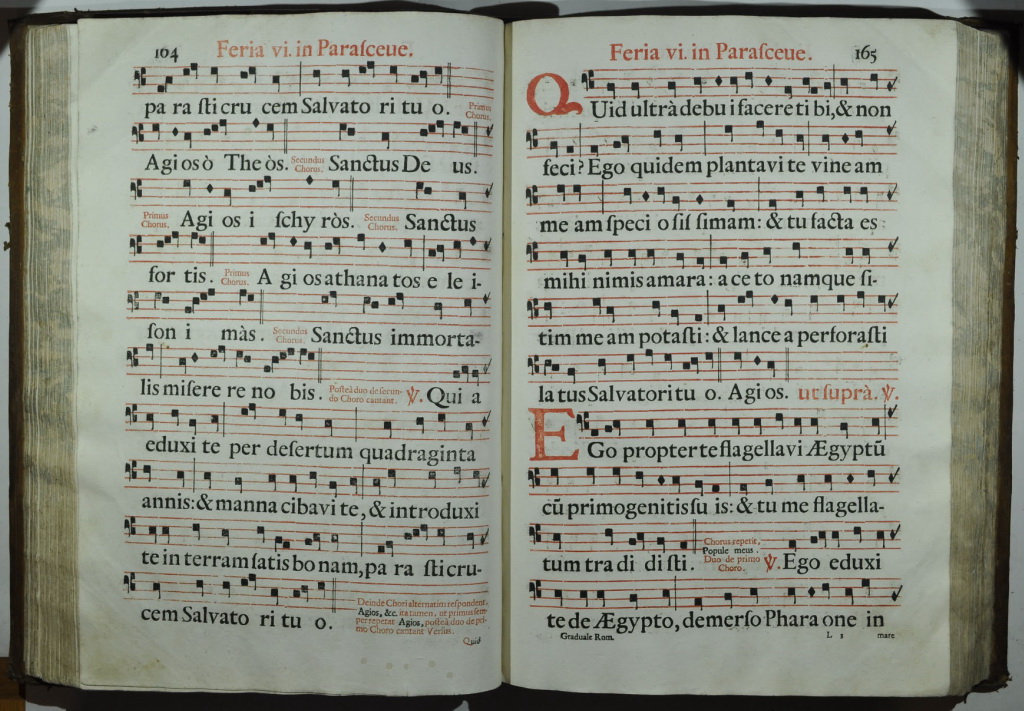 104 Feria vi. in Paraſceue.
pa ra ſti cru cem Salvato ri tu o. Primus Chorus.
Agi os ò The òs. Secundus Chorus. Sanctus De us.
Primus Chorus. Agi os i ſchy ròs. Secundus Chorus. Sanctus
for tis. Primus Chorus. A gi os athana tos e le i-
ſon i màs. Secundus Chorus. Sanctus immorta-
lis miſere re no bis. Poſteà duo de ſecun-
do Choro cantant. ℣. Qui a
eduxi te per deſertum quadraginta
annis: & manna cibavi te, & introduxi
te in terram ſatis bo nam, pa ra ſti cru-
cem Salvato ri tu o. Deinde Chori alternatim reſpondent,
Agios, &c. ita tamen, ut primus ſem-
per repetat Agios, poſteà duo de pri-
mo Choro cantant Verſus.
Quid
Feria vi. in Paraſceue. 165
QUid ultrà debu i facere ti bi, & non
feci? Ego quidem plantavi te vine am
me am ſpeci o ſiſ ſimam: & tu facta es
mihi nimis amara: a ce to namque ſi-
tim me am potaſti: & lance a perforaſti
la tus Salvatori tu o. Agi os. ut ſuprà. ℣.
EGo propter te flagellavi Ægyptũ
cũ primogenitis ſu is: & tu me flagella-
tum tra di di ſti. Chorus repetit,
Popule meus.
Duo de primo
Choro. ℣. Ego eduxi
te de Ægypto, demerſo Phara one in
Graduale Rom. L 3 mare